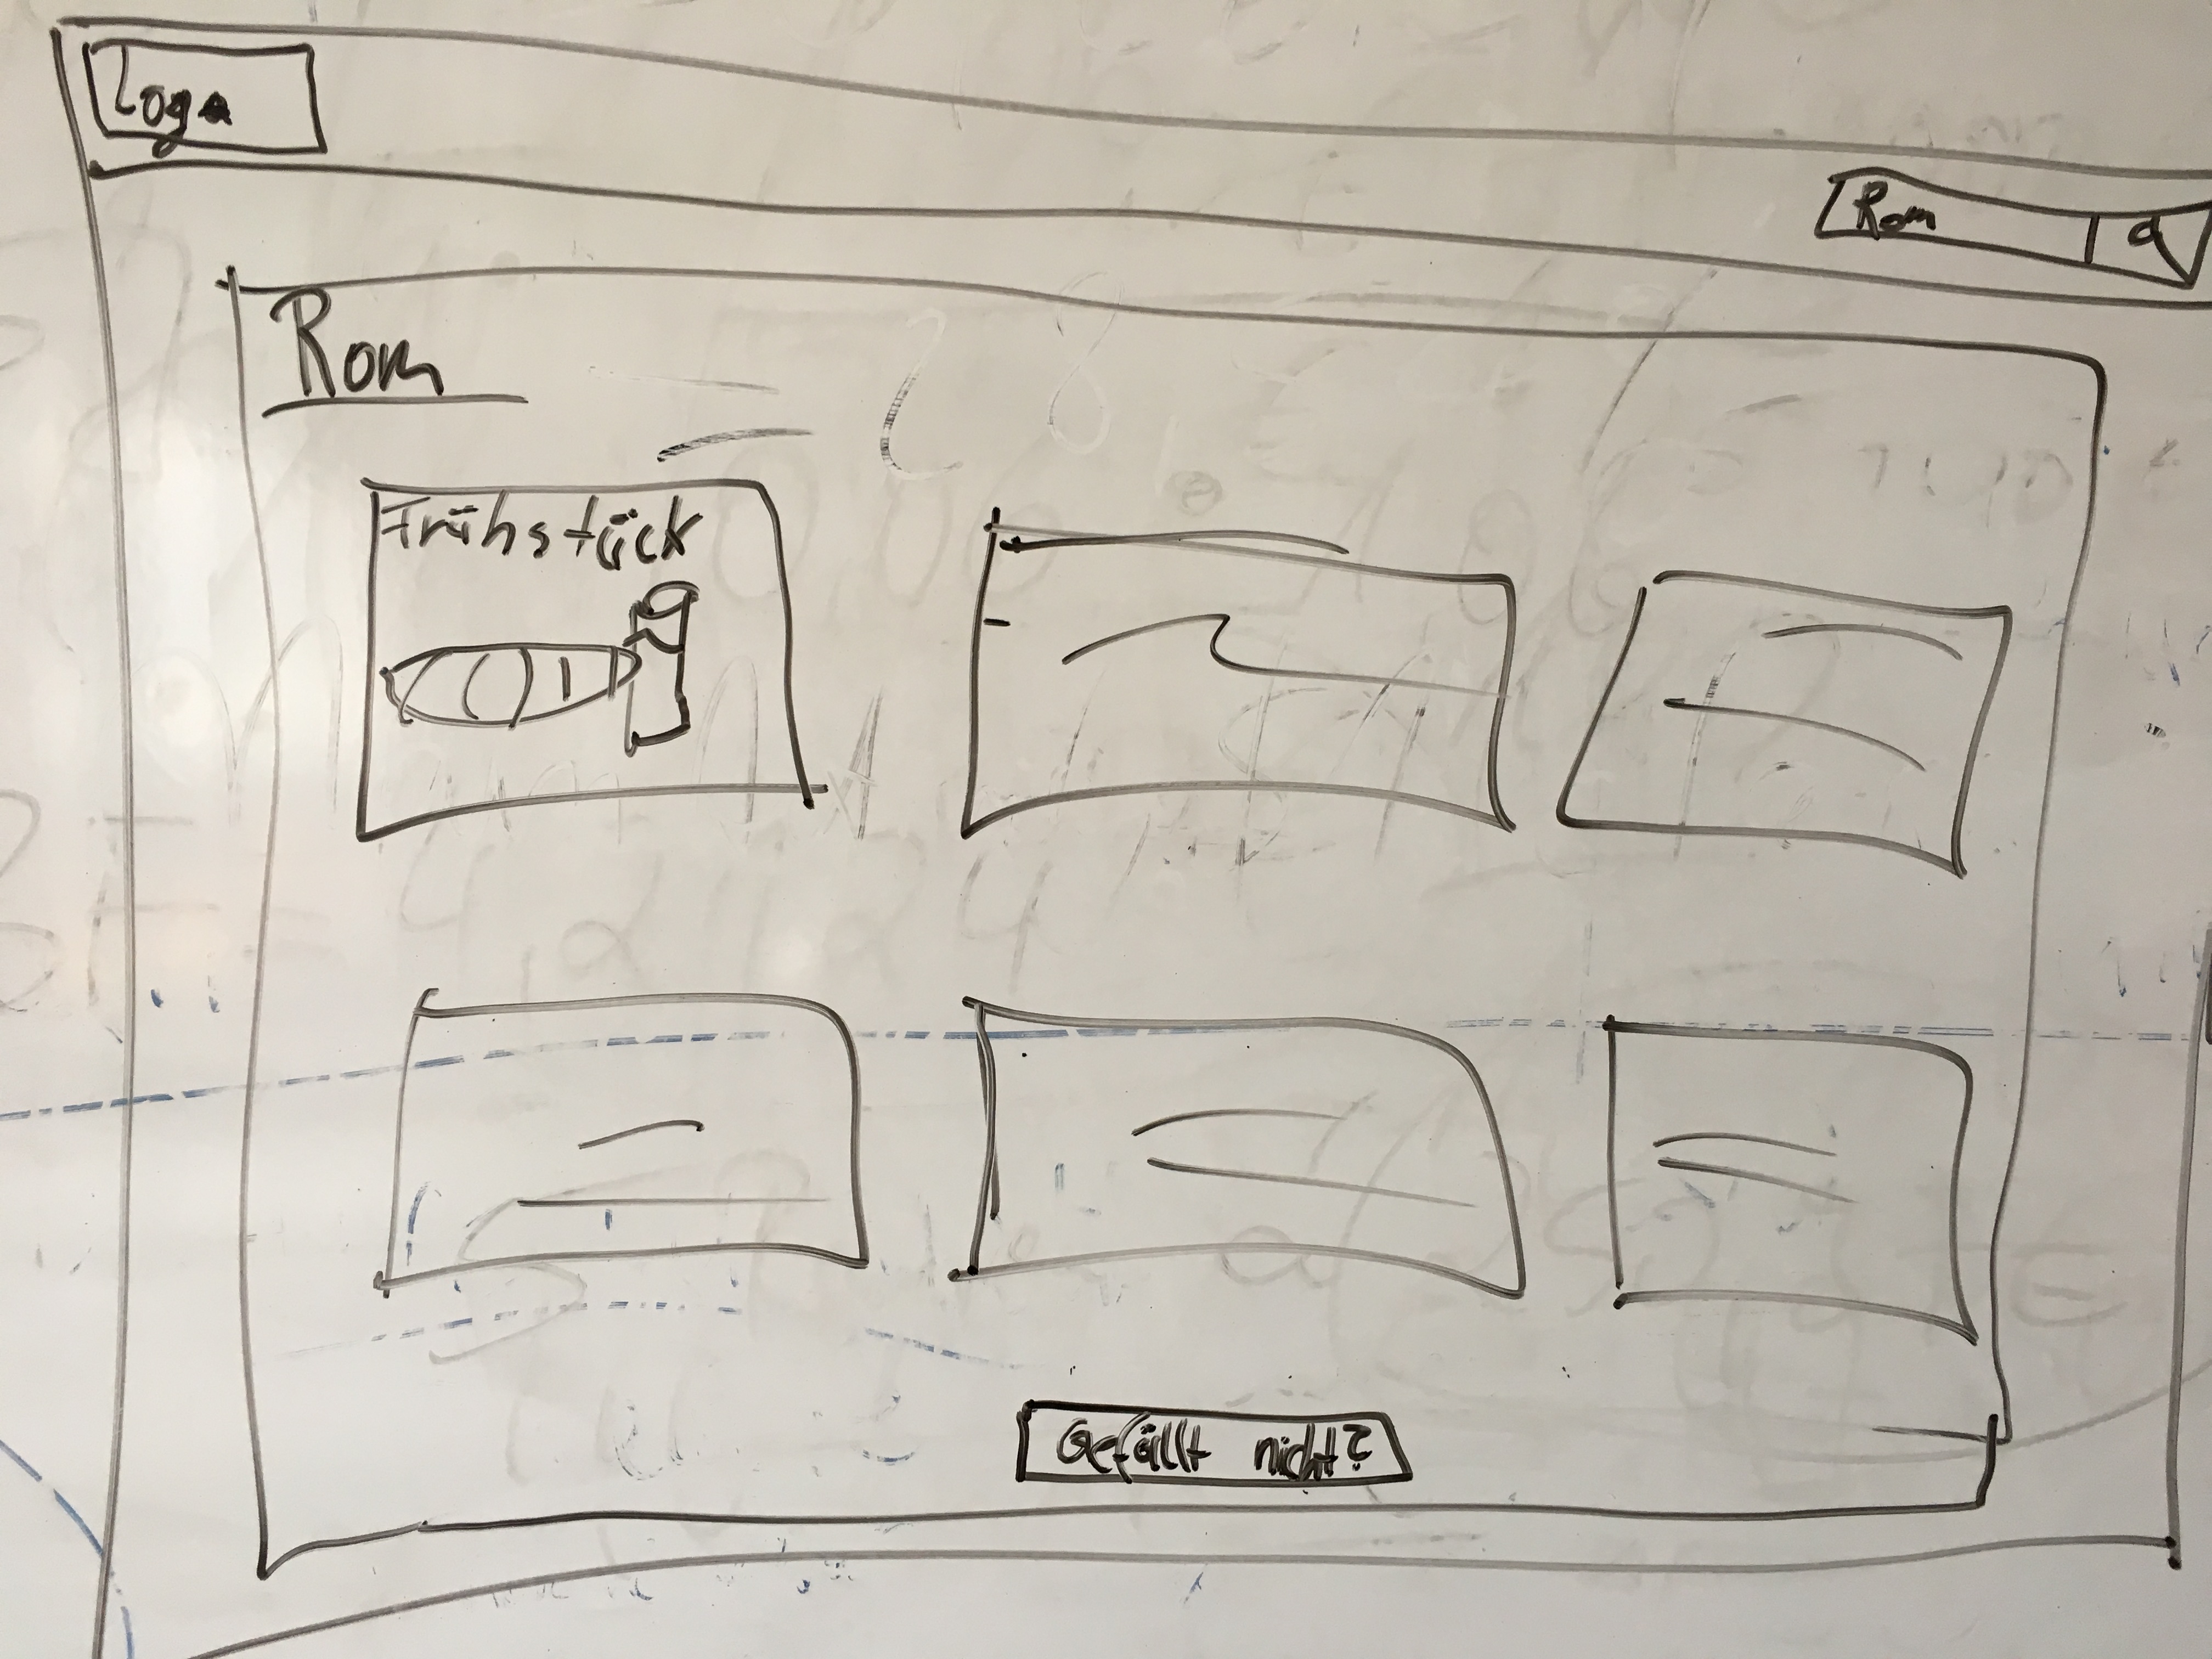 Logo
Rom
Rom
Frühstück
Gefällt nicht?